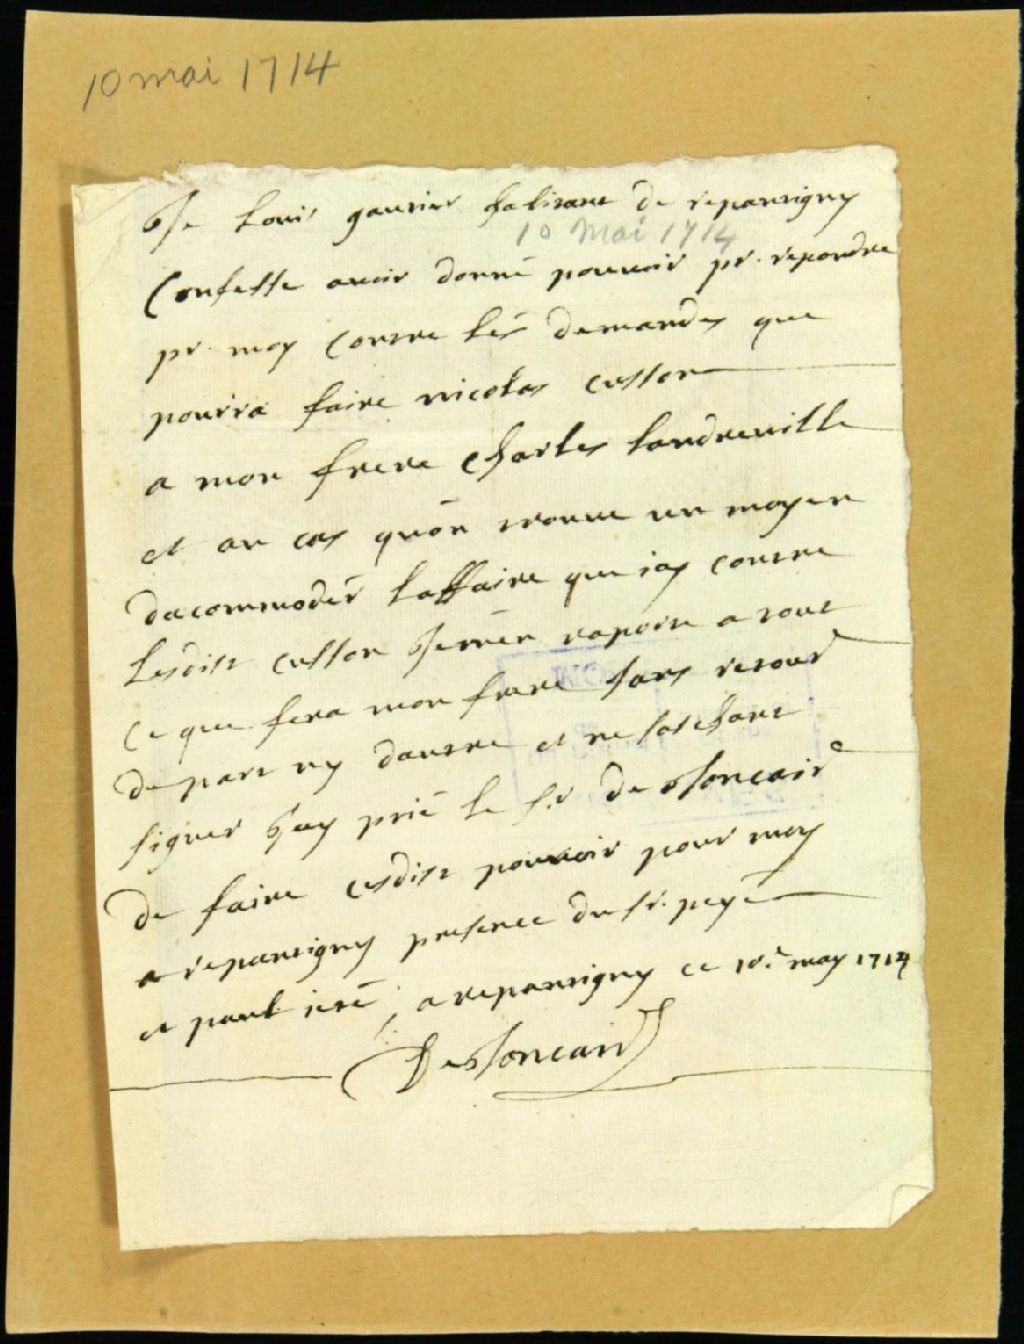 10 mai 1714
Je Louis gautier habitant de repantigny
10 Mai 1714
Confesse avoir donné pouvoir pr. repondre
pr. moy contre les demandes que
pourra faire nicolas cusson
a mon frere charles landreville
et au cas quon trouve un moyen
dacommoder laffaire que iay contre
lesdist cusson Je men raporte a tout
ce que fera mon frere sans retour
de part ny dautre et ne sachant
signer Jay prié le sr. de Joncaire
de faire cesdist pouvoir pour moy
a repantigny presence du sr. peyé
et paul ieté, a repantigny ce 10e. may 1714
De Joncaire